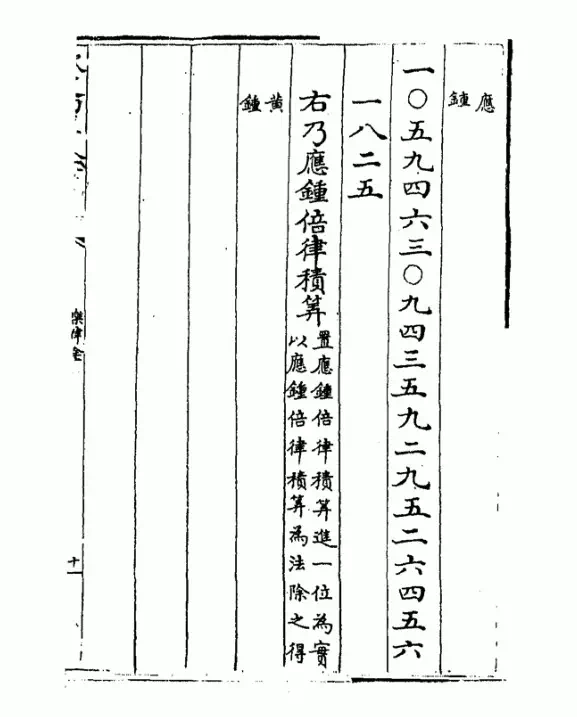 應鍾
一〇五九四六三〇九四三五九二九五二六四五六
一八二五
右乃應鍾倍律積筭
置應鍾倍律積筭進一位為實
以應鍾倍律積筭為法除之得
黃鍾
樂律全